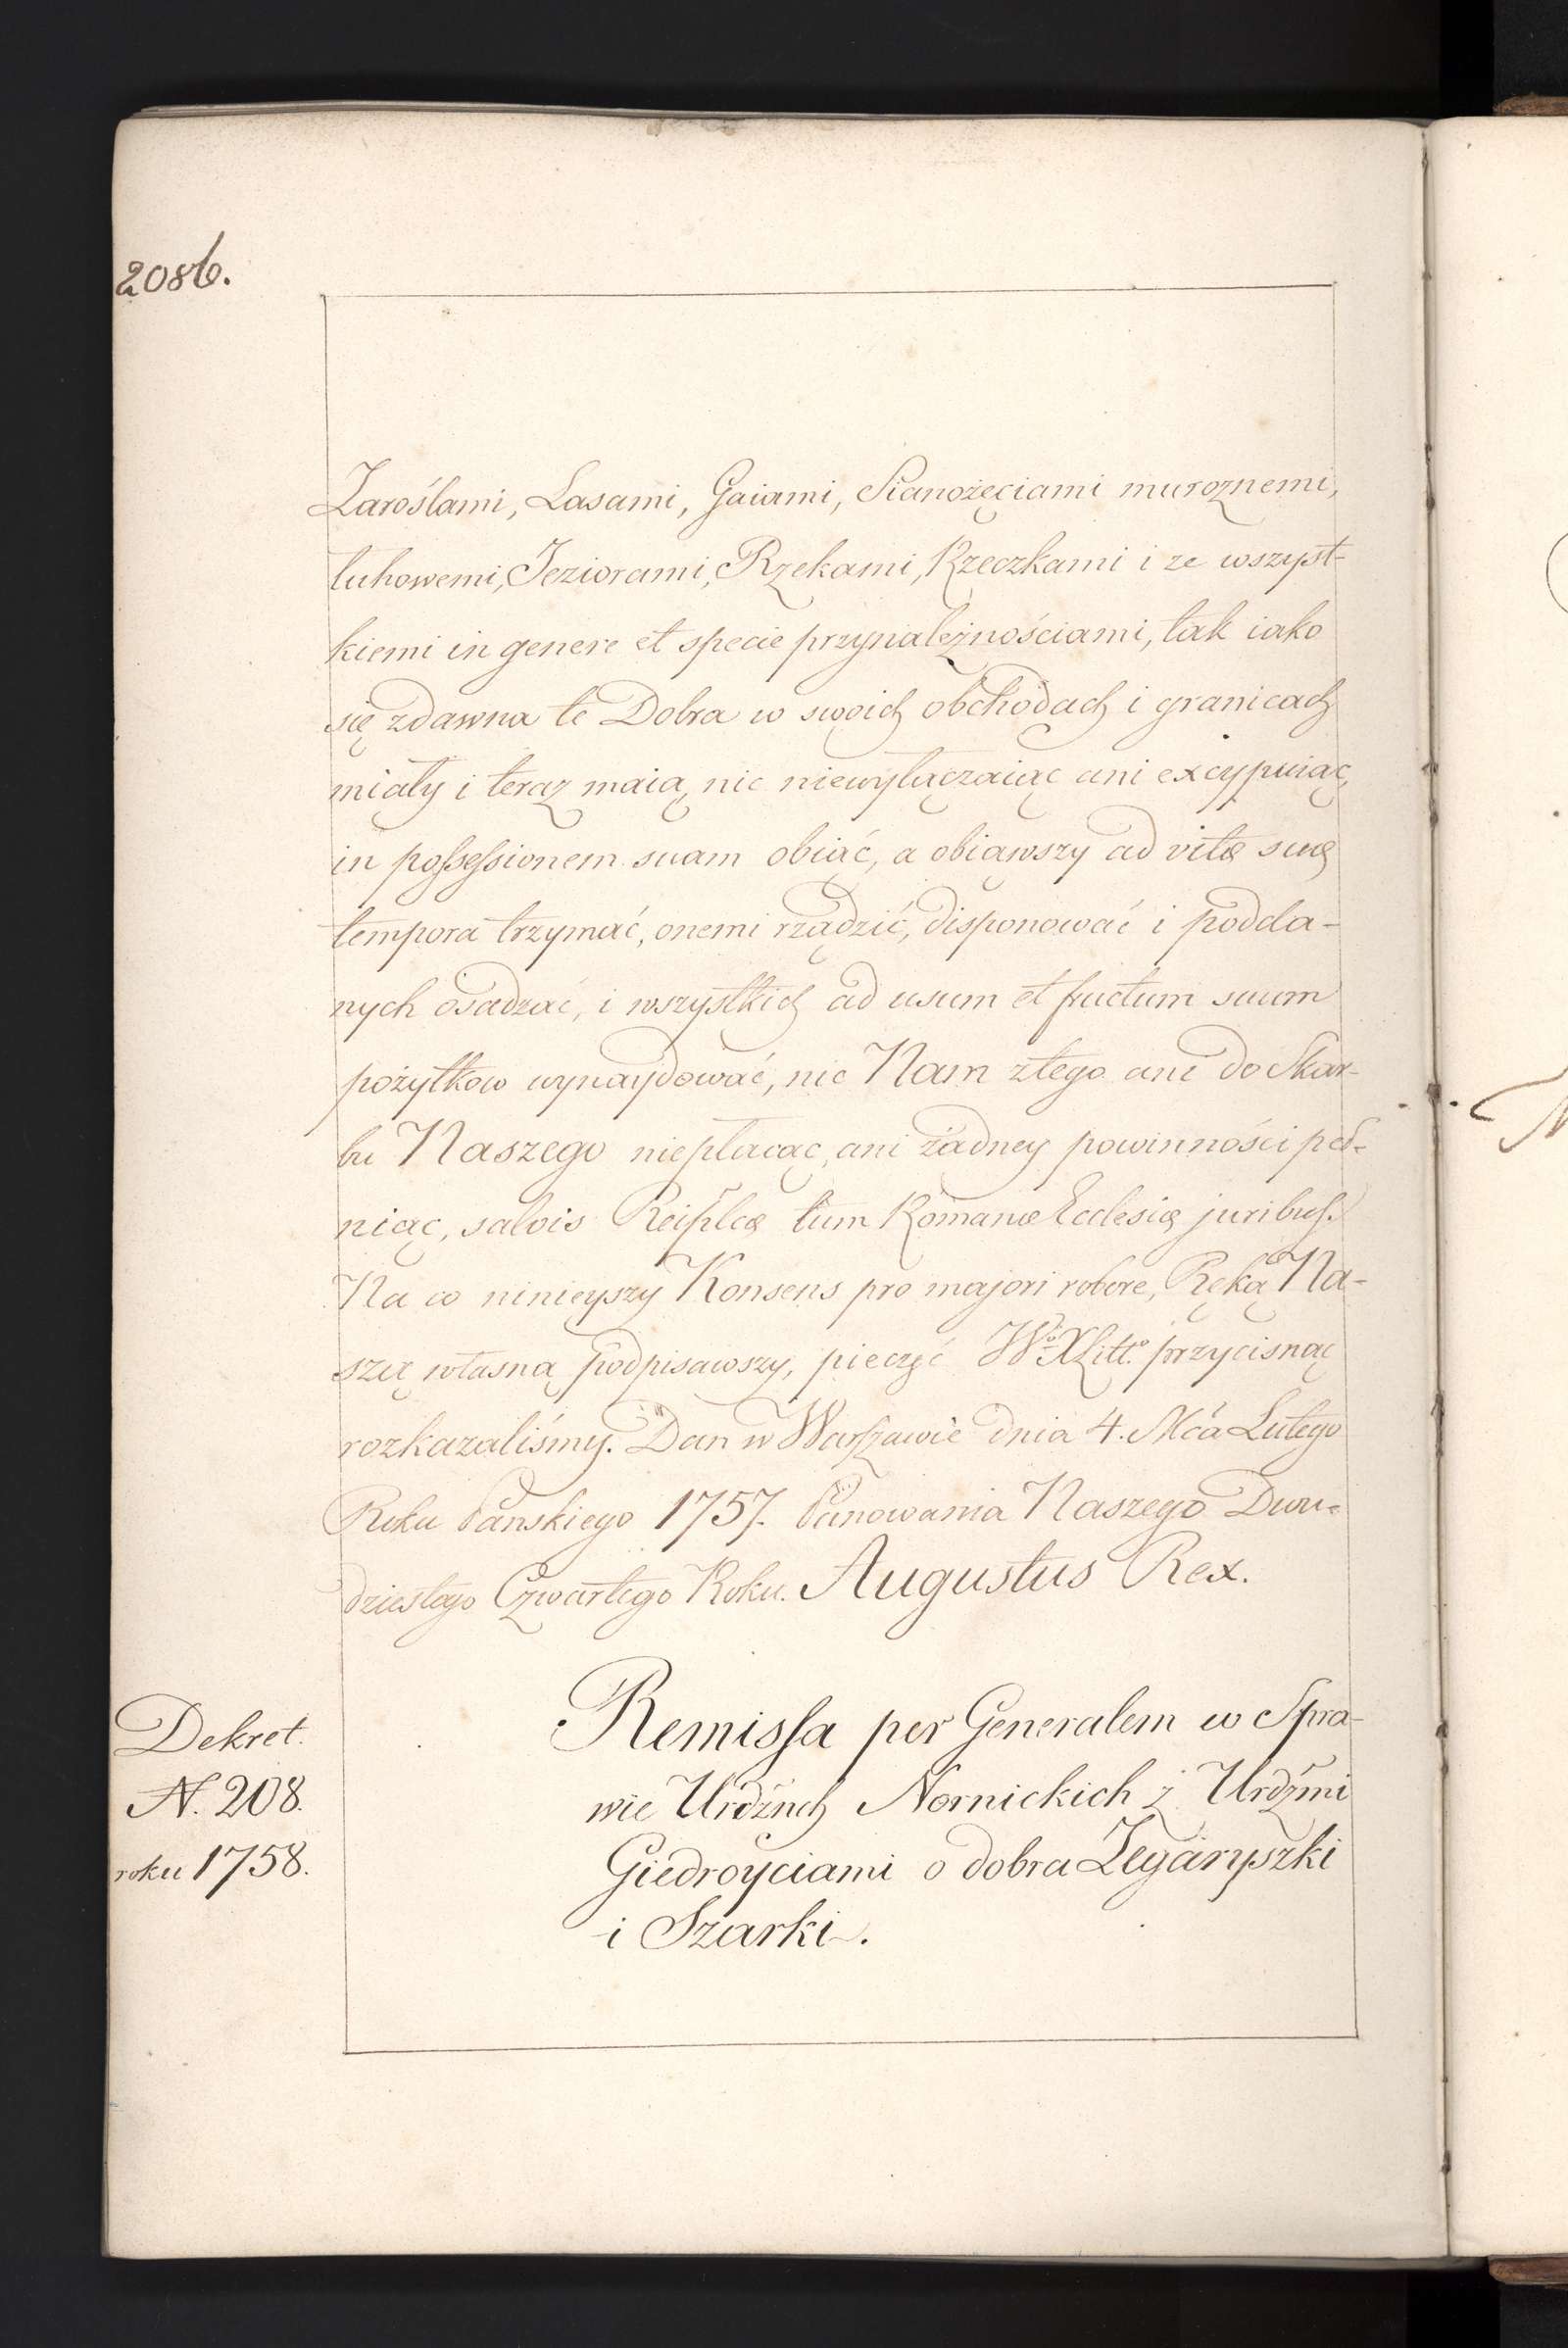 2086.
Zaroślami, Lasami, Gaiami, Sianożęciami murożnemi,
łuhowemi, Jeziorami, Rzekami, Rzeczkami i ze wszyst-
kiemi in genere et specie przynależnościami, tak iako
się zdawna te Dobra w swoich obchodach i granicach
miały i teraz maią, nic niewyłączaiąc ani excypuiąc,
in possessionem suam obiąć, a obiąwszy ad vitæ suæ
tempora trzymać, onemi rządzić, disponować i podda-
nych osadzać, i wszystkich ad usum et fructum suum
pożytkow wynaydować, nic Nam ztego ani do Skar-
bu Naszego niepłacąc, ani żadney powinności peł-
niąc, salvis Reiplcæ tum Romanæ Ecclesiæ juribus.
Na co ninieyszy Konsens pro majori robore, Ręką Na-
szą własną podpisawszy, pieczęć Wo XLitto przycisnąć
rozkazaliśmy. Dan w Warszawie dnia 4. Mca Lutego
Roku Pańskiego 1757. Panowania Naszego Dwu-
dziestego Czwartego Roku. Augustus Rex.
Remissa per Generalem w Spra-
wie Urdźnch Nornickich z Urdźmi
Giedroyciami o dobra Zegaryszki
i Szarki.
Dekret.
N. 208.
roku 1758.